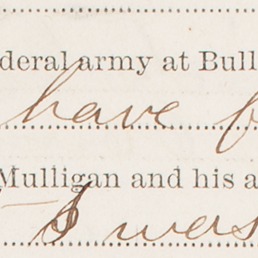 deral army at Bull
have
Mulligan and his a
I was